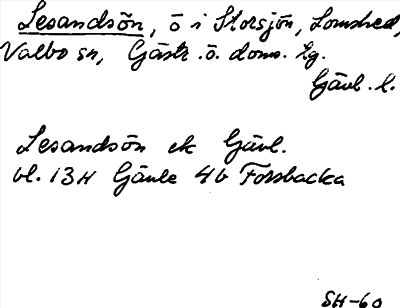 Lesandsön, ö i Storsjön, Lomshed,
Valbo sn, Gästr. ö. doms. tg.
Gävl. l.
Lesandsön ek Gävl.
bl. 13H Gävle 4b Forsbacka
SH-60